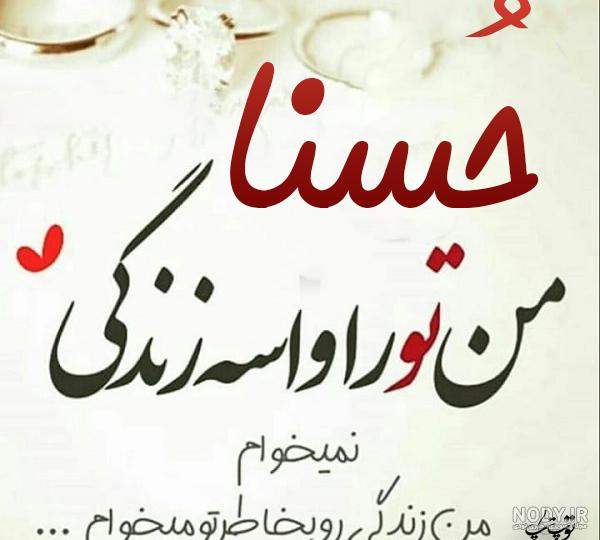 حُسنا
من تو را واسه زندگی
نمیخوام
من زندگی رو بخاطر تو میخوام ...
NODY.IR